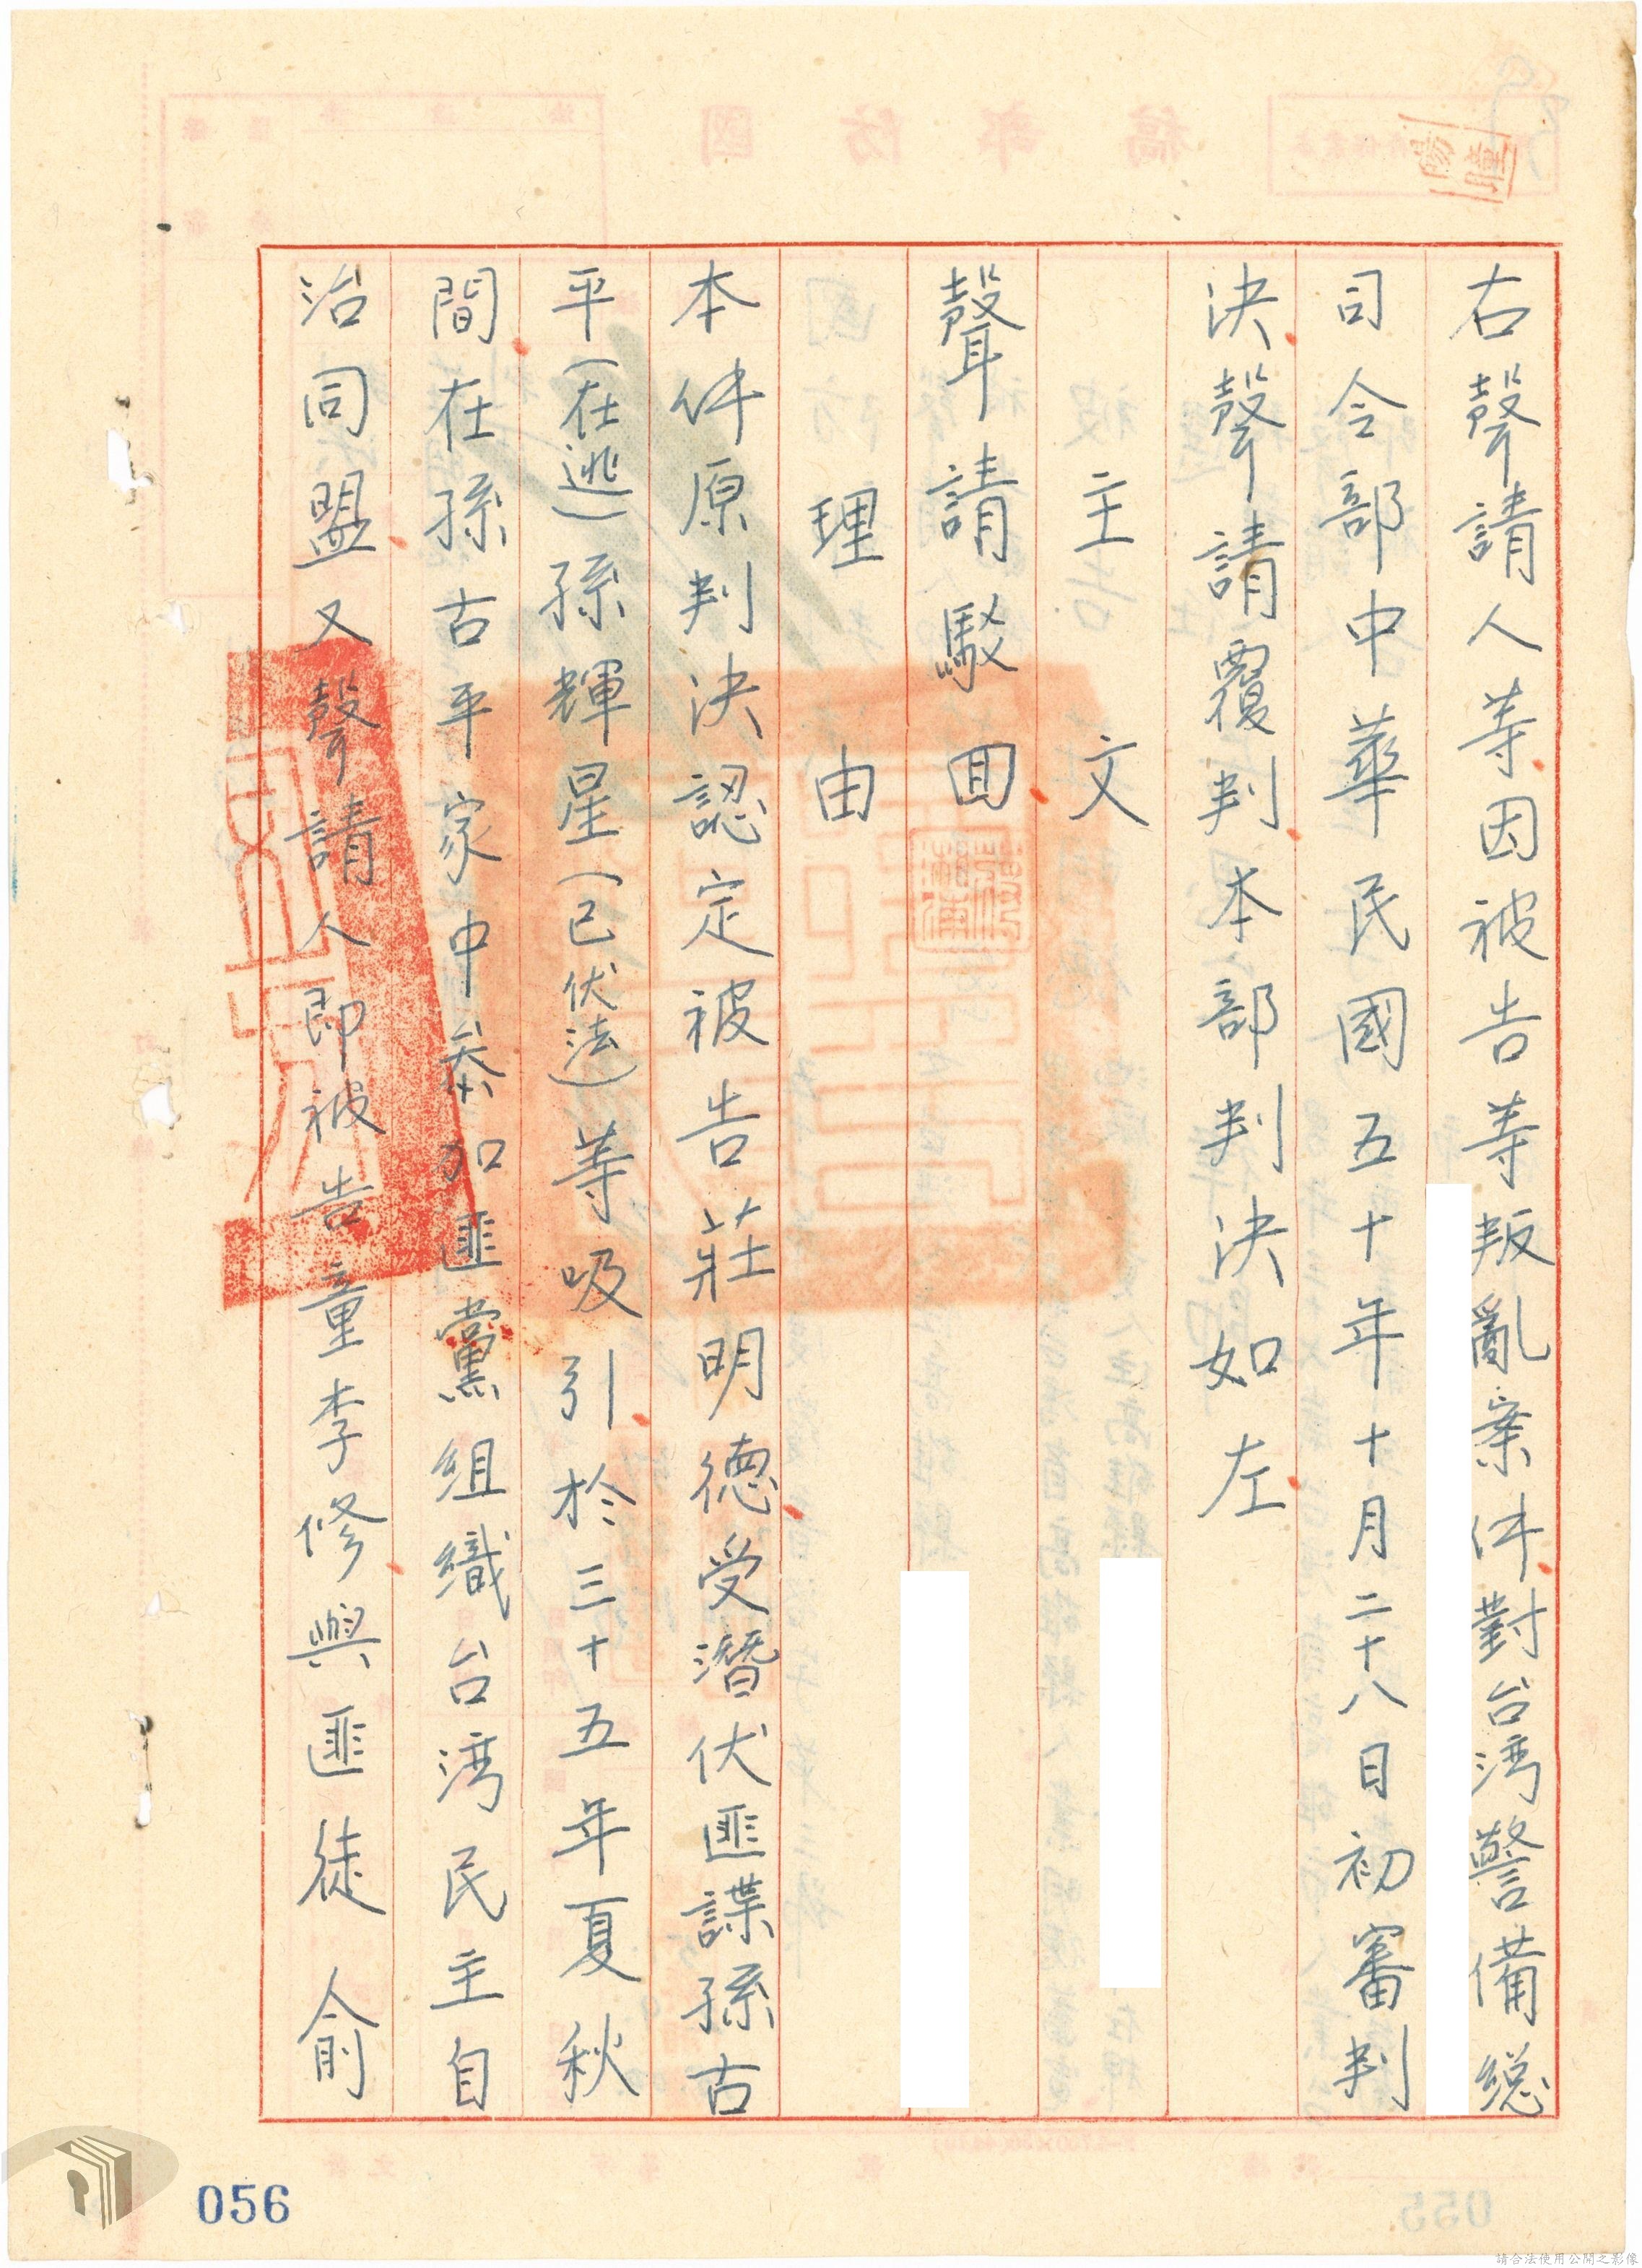 右聲請人等因被告等叛亂案件對台湾警備総
司令部中華民國五十年十月二十八日初審判
決聲請覆判本部判決如左
主文
聲請駁回
理由
本件原判決認定被告莊明德受潛伏匪諜孫古
平（在逃）孫輝星（已伏法）等吸引於三十五年夏秋
間在孫古平家中叅加匪黨組織台湾民主自
治同盟又聲請人即被告童李修與匪徒俞
056
請合法使用公開之影像